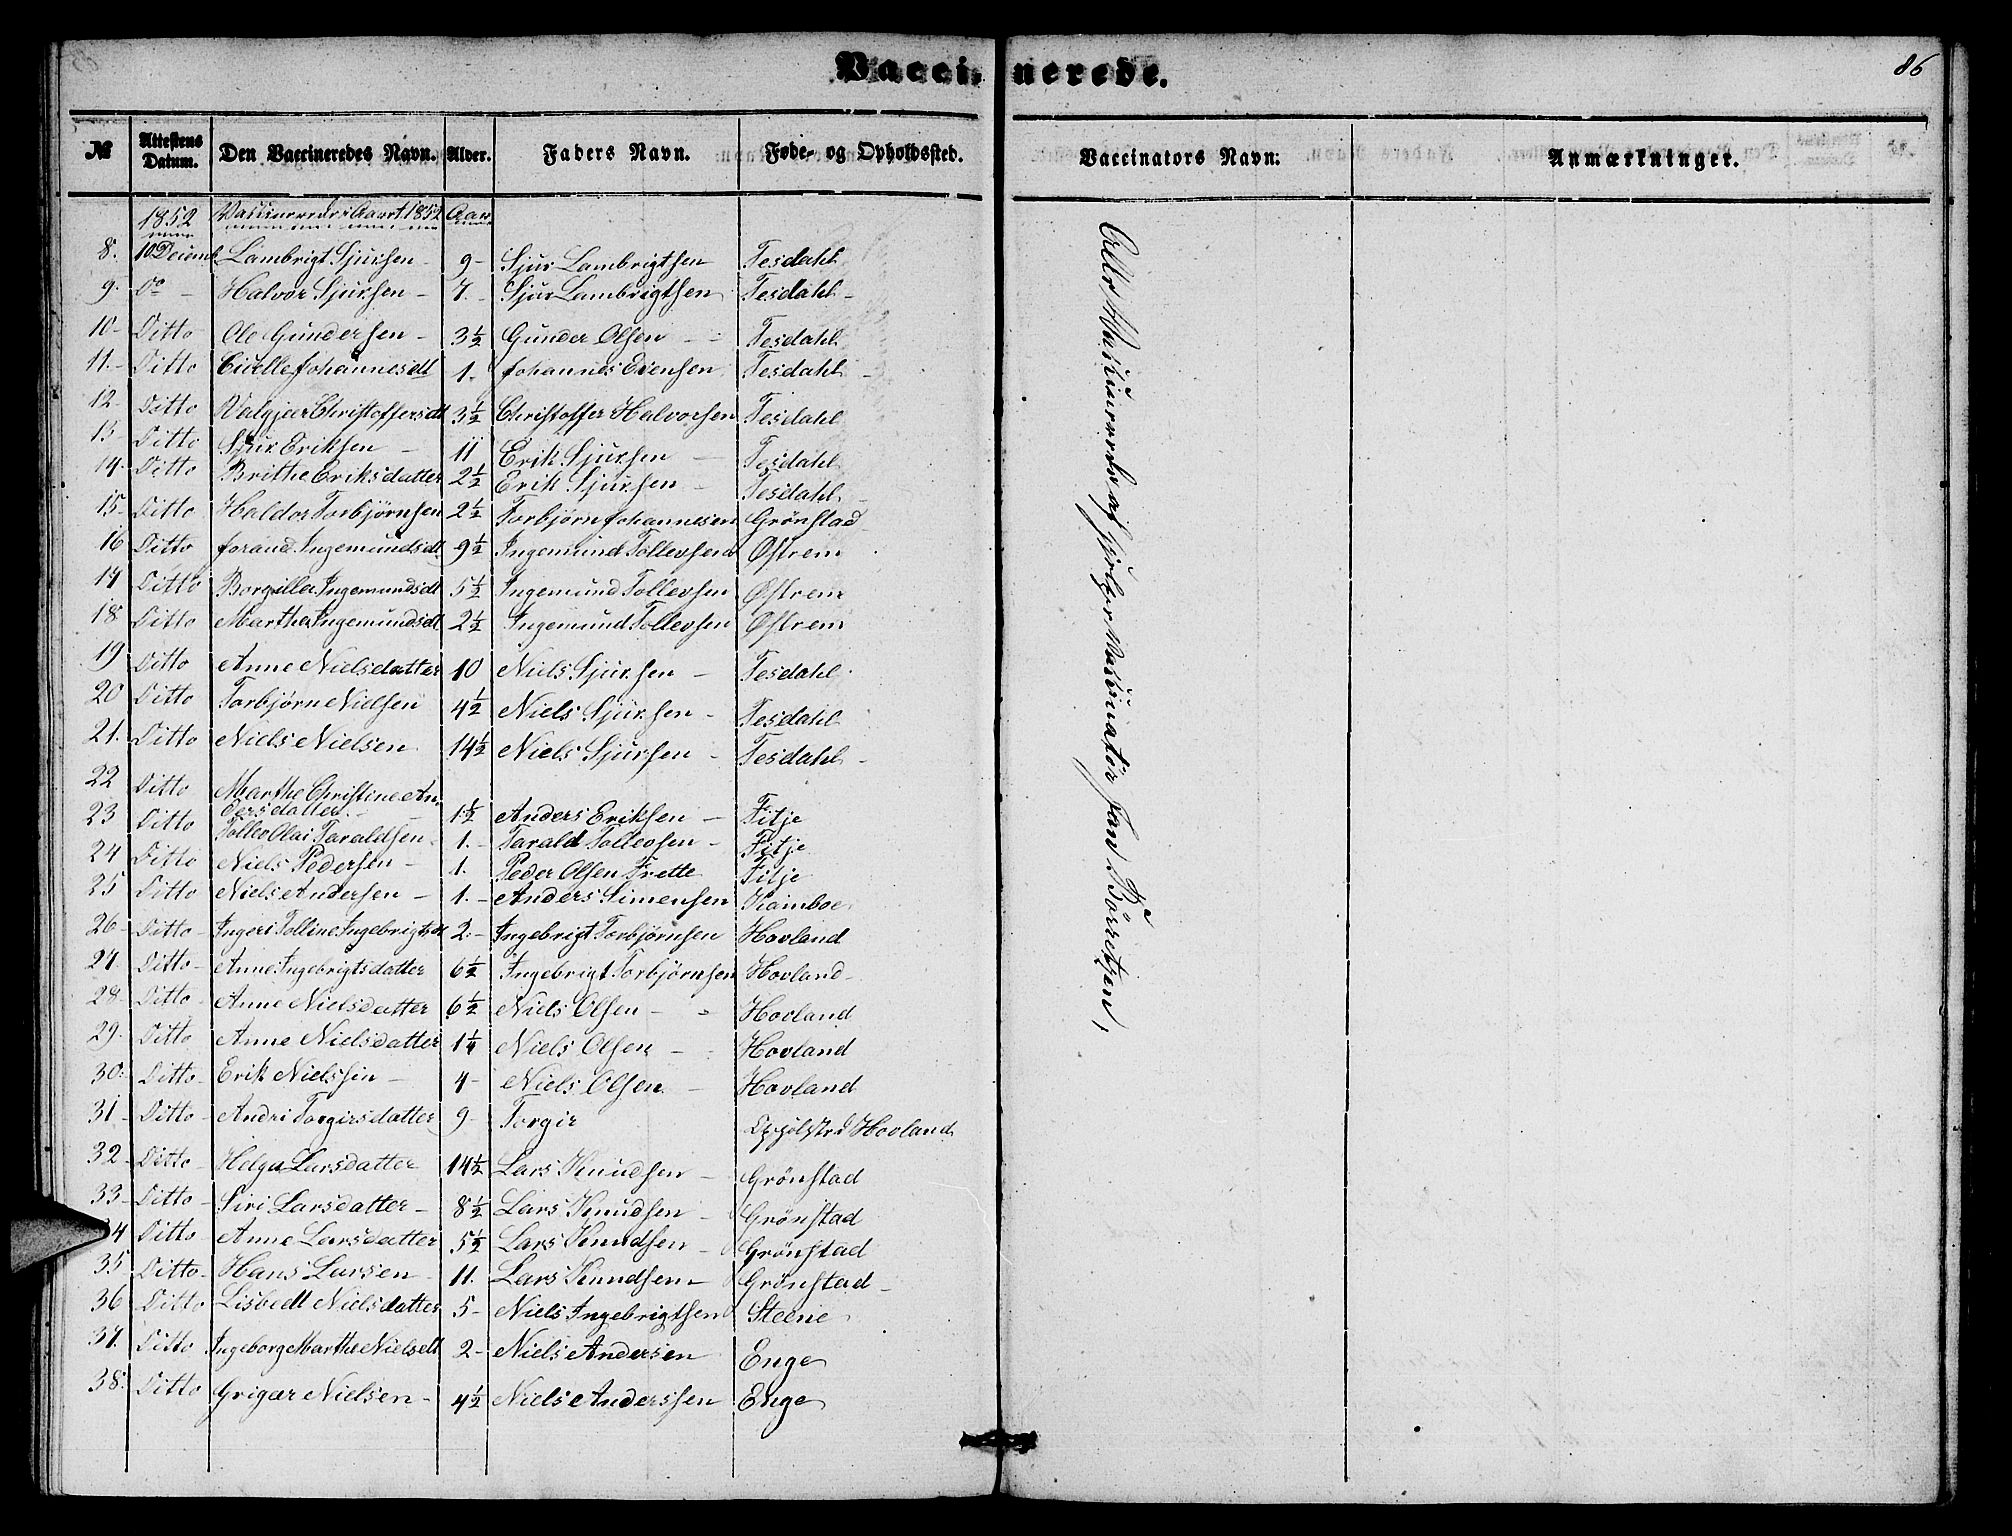 Vaccinerede.
86
№ Attestens Datum. Den Vaccineredes Navn. Alder. Faders Navn. Føde- og Opholdssted. Vaccinators Navn: Anmærkninger.
1852 Vaccinerede i Aaret 1852 Aar
8. 10 Decemb. Lambrigt Sjursen - 9 - Sjur Lambrigtsen Tesdahl
9. Do - Halvor Sjursen - 7. - Sjur Lambrigtsen Tesdahl -
10 - Ditto Ole Gundersen - 3½ Gunder Olsen - Tesdahl
11. - Ditto Johannesdt 1. Johannes Evensen Tesdahl -
12 - Ditto Valgjer Christoffersdt 3½ Christoffer Halvorsen Tesdahl
13 Ditto Sjur Eriksen - 11 Erik Sjursen - Tesdahl
14 - Ditto Brithe Eriksdatter 2½ Erik Sjursen - Tesdahl -
15 - Ditto Haldor Torbjørnsen 2½ Torbjørn Johannesen Grönstad
16 Ditto Jorand Ingemundsdt 9½ Ingemund Tollevsen Østrem
17 Ditto Borgille Ingemundsdt 5½ Ingemund Tollevsen Østrem
18 Ditto Marthe Ingemundsdt 2½ Ingemund Tollevsen Østrem
19 Ditto Anne Nielsdatter 10 Niels Sjursen - Tesdahl
20 Ditto Torbjørn Nielsen 4½ Niels Sjursen - Tesdahl
21. Ditto Niels Nielsen 14½ Niels Sjursen - Tesdahl -
22 Ditto Marthe Christine An-
dersdatter - 1½ Anders Eriksen - Fitje
23 Ditto Tollev Olai Taraldsen 1. - Tarald Tollevsen - Fitje
24 Ditto Niels Pedersen - 1. Peder Olsen Frette Fitje
25 Ditto Niels Andersen - 1. - Anders Simensen Kamboe
26 - Ditto - Ingeri Tolline Ingebrigtsdt 2. - Ingebrigt Torbjørnsen Hovland
27. Ditto - Anne Ingebrigtsdatter 6½ Ingebrigt Torbjørnsen Hovland -
28 - Ditto - Anne Nielsdatter 6½ Niels Olsen - Hovland
29. Ditto - Anne Nielsdatter 1¼ Niels Olsen - Hovland
30. Ditto - Erik Nielssen - 4 - Niels Olsen - Hovland
31 - Ditto - Andri Torgirsdatter 9 - Torgir Hovland
32 - Ditto - Helga Larsdatter 14½ Lars Knudsen - Grönstad
33 - Ditto - Siri Larsdatter - 8½ Lars Knudsen - Grönstad
34 Ditto - Anne Larsdatter 5½ Lars Knudsen - Grönstad
35 Ditto - Hans Larsen 11. Lars Knudsen - Grönstad -
36 Ditto Lisbedt Nielsdatter 5 - Niels Ingebrigtsen Steene
37. Ditto Ingeborg Marthe Nielsdt 2 - Niels Andersen Enge
38. Ditto Grigar Nielsen - 4½ Niels Anderssen Enge
Alle Vaccinerede af